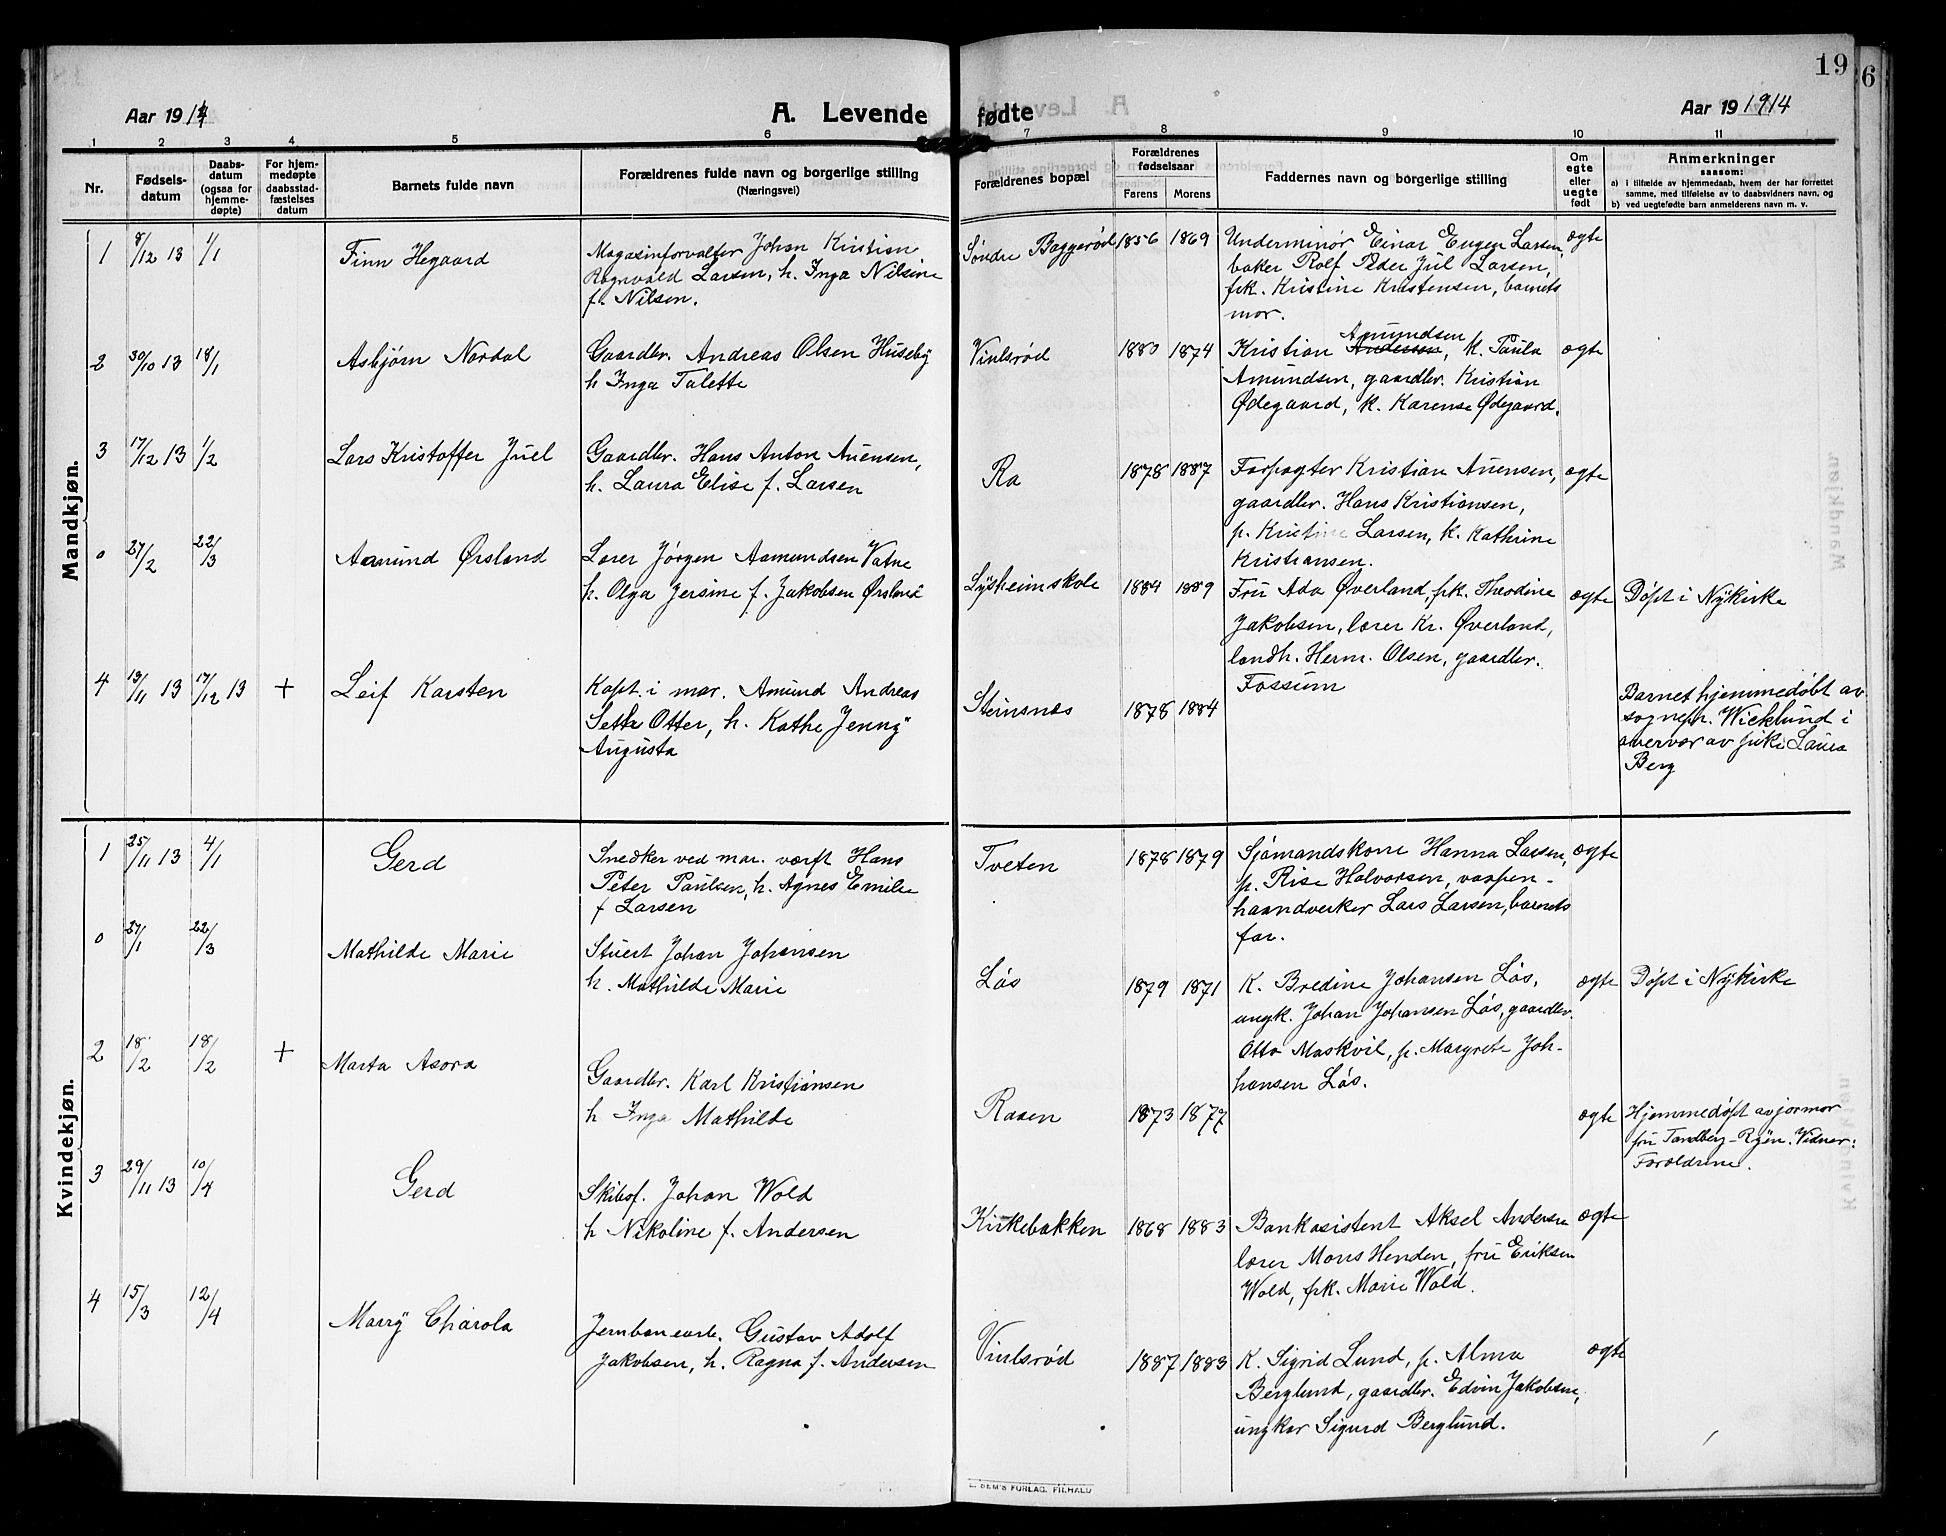 19
6
Aar 1914
A. Levende fødte
Aar 19 1914
1 2 3 4 5 6 7 8 9 10 11
Nr.
Fødsels-
datum
Daabs-
datum
(ogsaa for
hjemme-
døpte)
For hjem-
medøpte
daabsstad-
fæstelses
datum
Barnets fulde navn
Forældrenes fulde navn og borgerlige stilling
(Næringsvei)
Forældrenes bopæl
Forældrenes
fødselsaar
Farens Morens
Faddernes navn og borgerlige stilling
Om
egte
eller
uegte
født
Anmerkninger
saasom:
a) i tilfælde av hjemmedaab, hvem der har forrettet
samme, med tilføielse av to daabsvidners navn, og
b) ved uegtefødte barn anmelderens navn m. v.
Mandkjøn.
1 8/12 13 1/1 Finn Hegaard
Magasinforvalter Johan Kristian
Ragnvald Larsen, h. Inga Nilsine
f. Nilsen.
Søndre Baggerød 1856 1869
Underminør Einar Eugen Larsen,
baker Rolf Peder Jul Larsen,
frk. Kristine Kristensen, barnets
mor.
egte
2 30/10 13 18/1 Asbjørn Nordal
Gaardbr. Andreas Olsen Huseby
h Inga Talette
Vinlsrød 1880 1874
Amundsen
Kristian Andersen, k. Paula
Amundsen, gaardbr. Kristian
Ødegaard, k. Karense Ødegaard.
egte
3 17/12 13 1/2 Lars Kristoffer Juel
Gaardbr. Hans Anton Auensen,
h. Laura Elise f. Larsen
Ra 1878 1887
Forpagter Kristian Auensen,
gaardbr. Hans Kristiansen,
p. Kristine Larsen, k. Kathrine
Kristiansen.
egte
0 27/2 22/3 Aamund Ørsland
Lærer Jørgen Aamundsen Vatne
h. Olga Jersine f. Jakobsen Ørsland
Lysheimskole 1884 1889
Fru Ada Øverland, frk. Theodine
Jakobsen, lærer Kr. Øverland,
landh. Herm. Olsen, gaardbr.
Fossum
egte
Døpt i Nykirke
4 13/11 13 17/12 13 + Leif Karsten
Kapt. i mar. Amund Andreas
Seth Otter, h. Kathe Jenny
Augusta
Steinsnes 1878 1884
Barnet hjemmedøbt av
sognepr. Wicklund i
overvær av frk. Laura
Berg
Kvindekjøn.
1 25/11 13 4/1 Gerd
Snedker ved mar. værft Hans
Peter Paulsen, h. Agnes Emilie
f Larsen
Tveten 1878 1879
Sjømandskone Hanna Larsen,
p. Rise Halvorsen, vaapen-
haandverker Lars Larsen, barnets
far.
egte
0 27/1 22/3 Mathilde Marie
Stuert Johan Johansen
h. Mathilde Marie
Løs 1879 1871
K. Bredine Johansen Løs,
ungk. Johan Johansen Løs, gaardbr.
Otto Maskvil, p. Margrete Joh-
hansen Løs.
egte
Døpt i Nykirke
2 18/2 18/2 + Marta Asora
Gaardbr. Karl Kristiansen
h Inga Mathilde
Raaen 1873 1877
egte
Hjemmedøpt av jormor
fru Tandberg-Ryen. Vidner:
Forældrene.
3 29/11 13 10/4 Gerd
Skibsf. Johan Wold
h Nikoline f. Andersen
Kirkebakken 1868 1883
Bankasistent Aksel Andersen
lærer Mons Henden, fru Eriksen
Wold, frk. Marie Wold.
egte
4 15/3 12/4 Marry Charola
Jernbanearb. Gustav Adolf
Jakobsen, h. Ragna f. Andersen
Vinlsrød 1887 1883
K. Sigrid Lund, p. Alma
Berglund, gaardbr. Edvin Jakobsen,
ungkar Sigurd Berglund.
egte
SEM'S FORLAG, FR.HALD